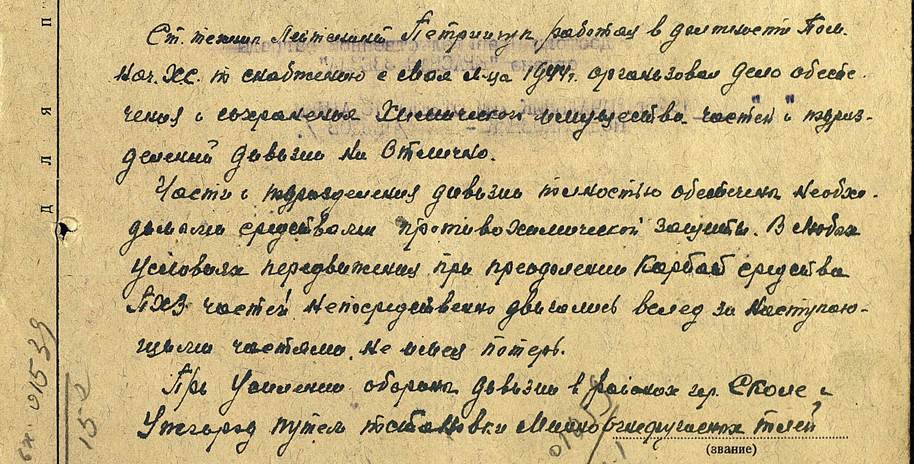 Ст. техник Лейтенант Петрищук работая в должности Пом.
Нач. ХС. по снабжению с мая м-ца 1944г. организовал дело обеспе-
чения и сохранения Химического имущества частей и подраз-
делений дивизии на Отлично.
Части и подразделения дивизии полностью обеспечены необхо-
димыми средствами противохимической защиты. В любых
условиях передвижения при преодолении Карпат средства
ПХЗ частей непосредственно двигались вслед за наступаю-
щими частями, не имея потерь.
При усилении обороны дивизии в районах гор. Сколе и
Ужгород путем постановки Минно огнефугасных полей
(звание)
Д Л Я П
вх. 01539
15-2